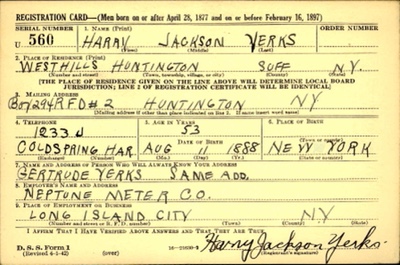 REGISTRATION CARD—(Men born on or after April 28, 1877 and on or before February 16, 1897)
SERIAL NUMBER 1. NAME (Print) ORDER NUMBER
U 560 HARRY JACKSON YERKS
(First) (Middle) (Last)
2. PLACE OF RESIDENCE (Print)
WESTHILLS HUNTINGTON SUFF N.Y.
(Number and street) (Town, township, village, or city) (County) (State)
[THE PLACE OF RESIDENCE GIVEN ON THE LINE ABOVE WILL DETERMINE LOCAL BOARD
JURISDICTION; LINE 2 OF REGISTRATION CERTIFICATE WILL BE IDENTICAL]
3. MAILING ADDRESS
BOX 294 RFD #2 HUNTINGTON NY
[Mailing address if other than place indicated on line 2. If same insert word same]
4. TELEPHONE 5. AGE IN YEARS 6. PLACE OF BIRTH
1233 J 53
DATE OF BIRTH (Town or county)
COLDSPRING HAR. AUG 11 1888 NEW YORK
(Exchange) (Number) (Mo.) (Day) (Yr.) (State or country)
7. NAME AND ADDRESS OF PERSON WHO WILL ALWAYS KNOW YOUR ADDRESS
GERTRUDE YERKS SAME ADD.
8. EMPLOYER'S NAME AND ADDRESS
NEPTUNE METER CO.
9. PLACE OF EMPLOYMENT OR BUSINESS
LONG ISLAND CITY N.Y.
(Number and street or R. F. D. number) (Town) (County) (State)
I AFFIRM THAT I HAVE VERIFIED ABOVE ANSWERS AND THAT THEY ARE TRUE.
D. S. S. Form 1 Harry Jackson Yerks.
(Revised 4-1-42) (over) (Registrant's signature)